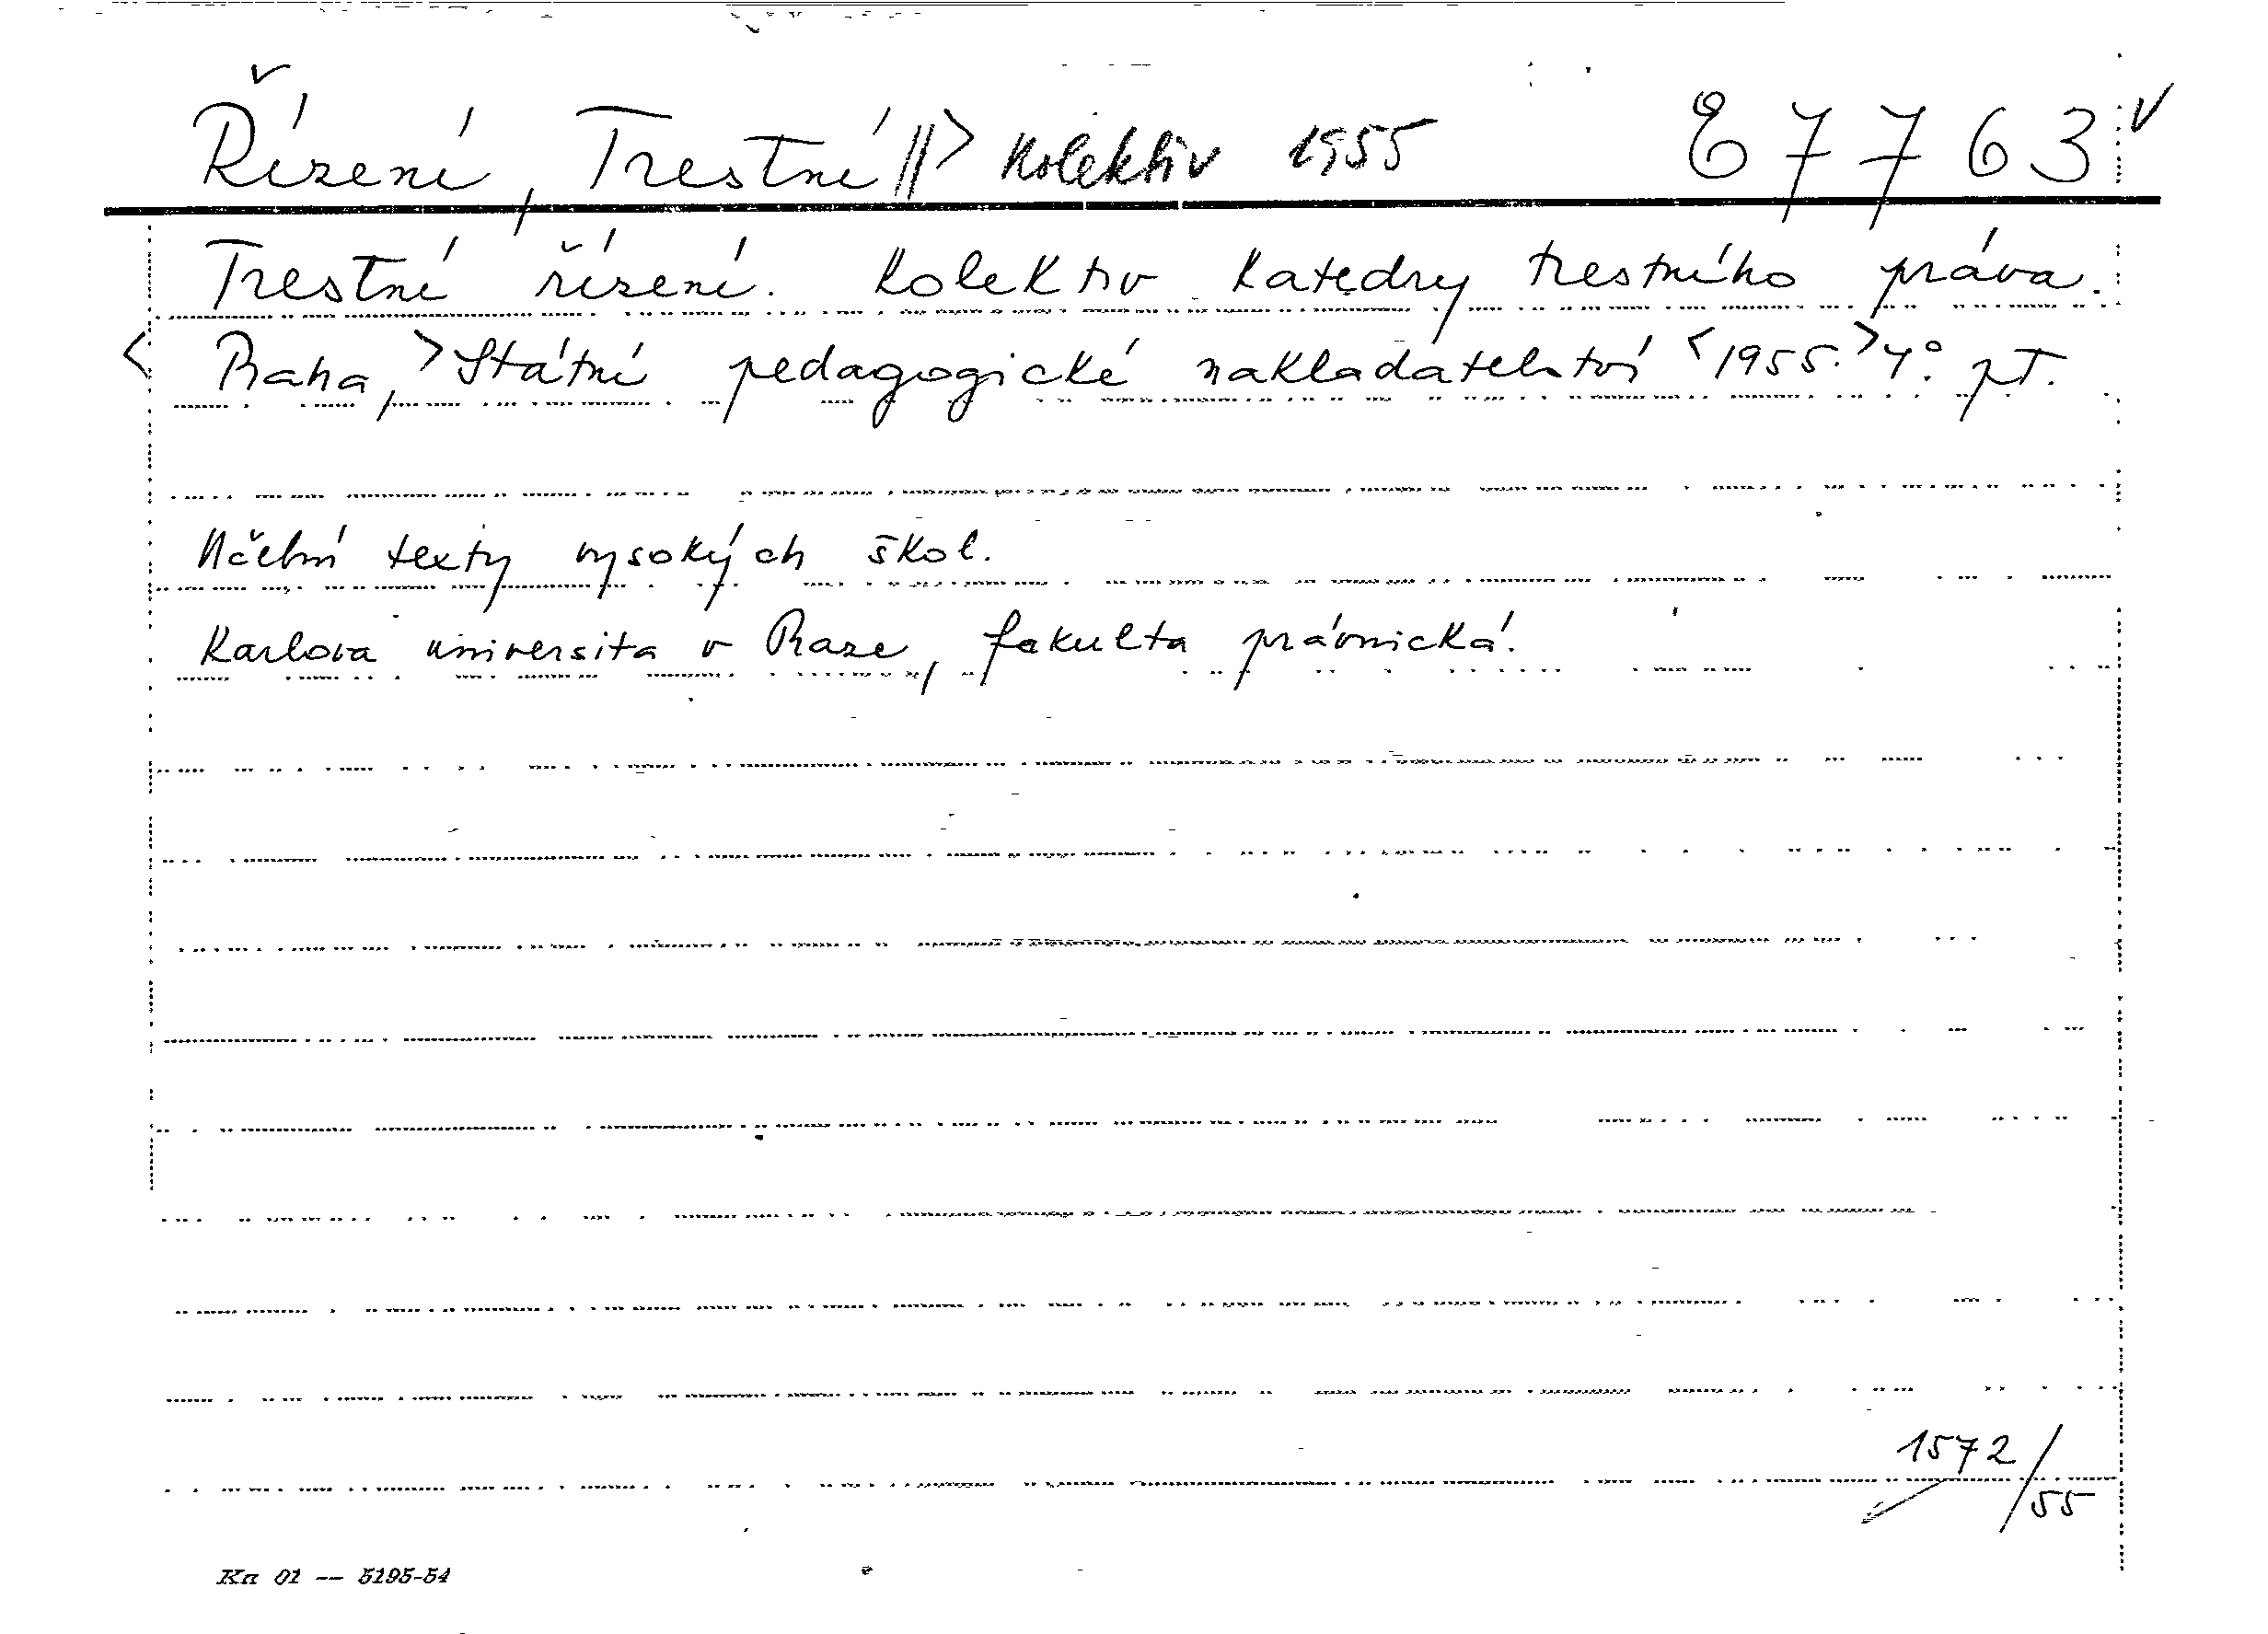 Řízení, Trestné ||> Kolektiv 1955 E 7763 v
Trestné řízení. Kolektiv Katedry trestního práva.
<Praha,> Státní pedagogické nakladatelství <1955.> 4°. pT.
Učební texty vysokých škol.
Karlova universita v Praze, fakulta právnická.
1572/55
Kn 01 -- 5195-54